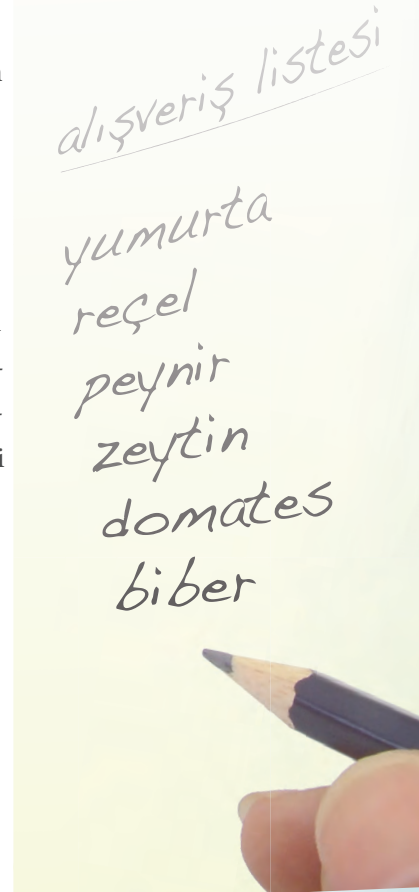 alışveriş listesi
yumurta
reçel
peynir
zeytin
domates
biber